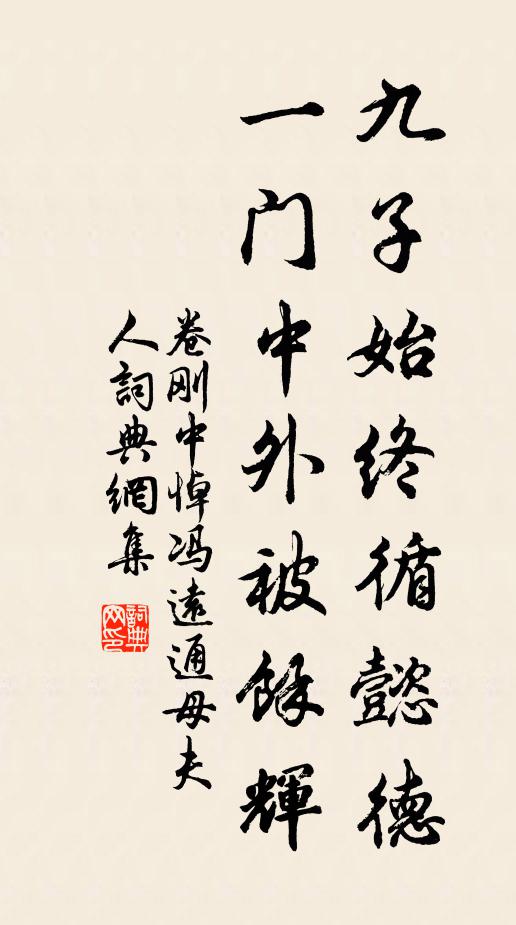 九子始终循懿德
一门中外被餘輝
卷刚中悼冯遠通母夫
人詞典網集
詞典
网印